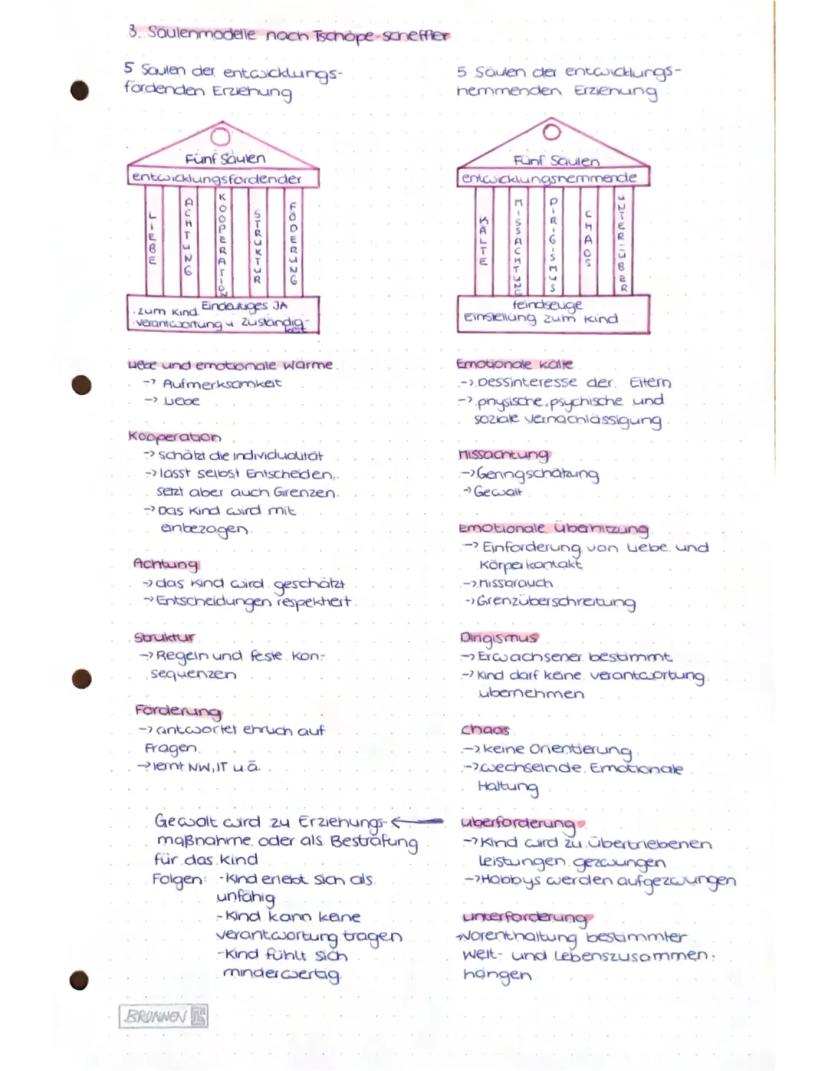 3. Säulenmodelle nach Tschöpe-scheffler
5 Säulen der entwicklungs-
fördenden Erziehung
Fünf Säulen
entwicklungsfördender
LIEBE
ACHTUNG
KOOPERATION
STRUKTUR
FÖDERUNG
Eindeutiges JA
zum Kind
verantwortung u zuständig-
keit
Liebe und emotionale wärme
-> Aufmerksamkeit
-> Liebe
Kooperation
-> schätzt die individualität
-> lässt selbst Entscheiden,
setzt aber auch Grenzen
-> Das Kind wird mit
einbezogen
Achtung
-> das Kind wird geschätzt
-> Entscheidungen respektiert
Struktur
-> Regeln und feste Kon-
sequenzen
Förderung
-> antwortet ehrlich auf
Fragen
-> lernt NW, IT u ä.
Gewalt wird zu Erziehungs-
maßnahme oder als Bestrafung
für das Kind
Folgen: -Kind erlebt sich als
unfähig
-Kind kann keine
verantwortung tragen
-Kind fühlt sich
minderwertig
BRUNNEN
5 Säulen der entwicklungs-
hemmenden Erziehung
Fünf Säulen
entwicklungshemmende
KÄLTE
MISSACHTUNG
DIRIGISMUS
CHAOS
UNTER-ÜBER
feindselige
einstellung zum Kind
Emotionale kälte
-> Dessinteresse der Eltern
-> physische, psychische und
soziale vernachlässigung
Missachtung
-> Geringschätzung
-> Gewalt
Emotionale überhitzung
-> Einforderung von Liebe und
Körperkontakt
-> Missbrauch
-> Grenzüberschreitung
Dirigismus
-> Erwachsener bestimmt
-> Kind darf keine verantwortung
übernehmen
Chaos
-> keine Orientierung
-> wechselnde Emotionale
Haltung
überforderung
-> Kind wird zu übertriebenen
leistungen gezwungen
-> Hobbys werden aufgezwungen
unterforderung
-> Vorenthaltung bestimmter
Welt- und Lebenszusammen-
hängen